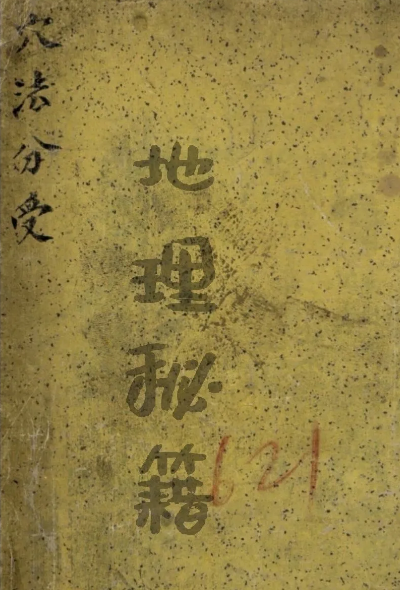 穴法分受
地理秘籍
621